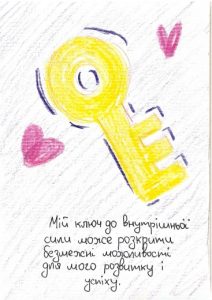 Мій ключ до внутрішньої
сили може розкрити
безмежні можливості
для мого розвитку і
успіху.